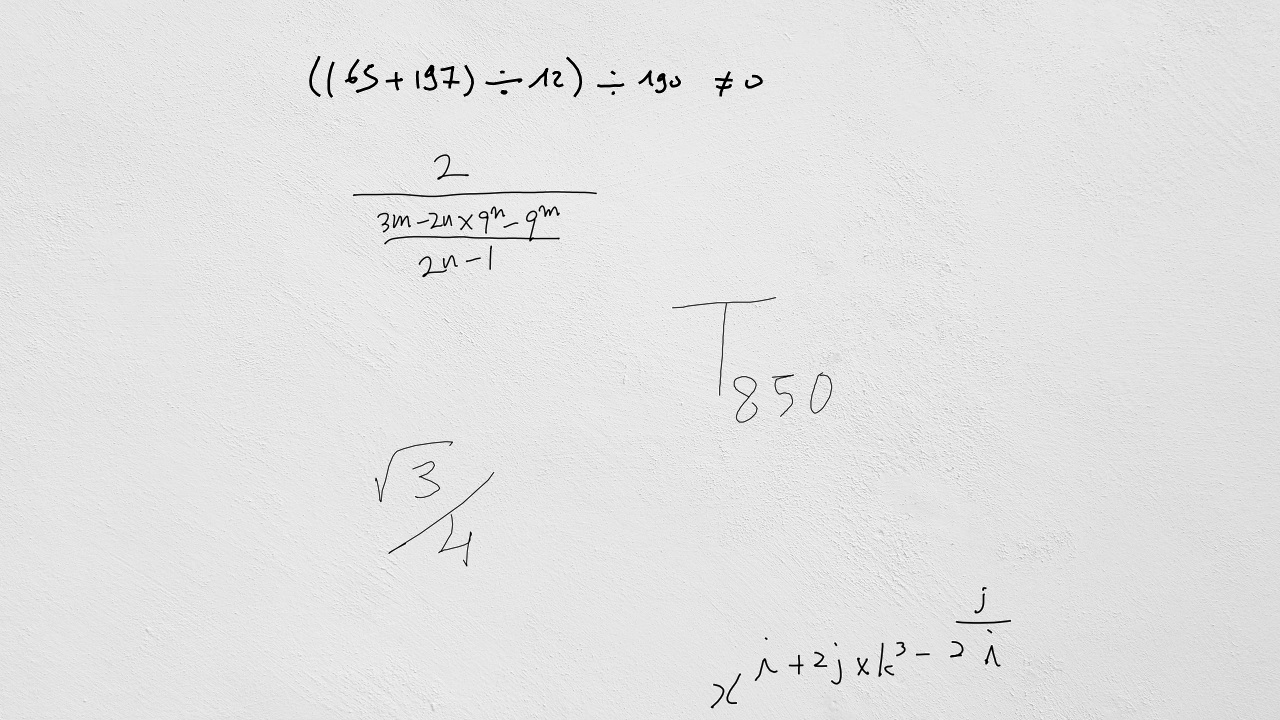 ((65+197)÷12)÷190 ≠0
\frac{2}{\frac{3m-2n×9^n-9^m}{2n-1}}
T_{850}
\sqrt{3}/4
x^{i+2j×k^3-\frac{j}{2i}}